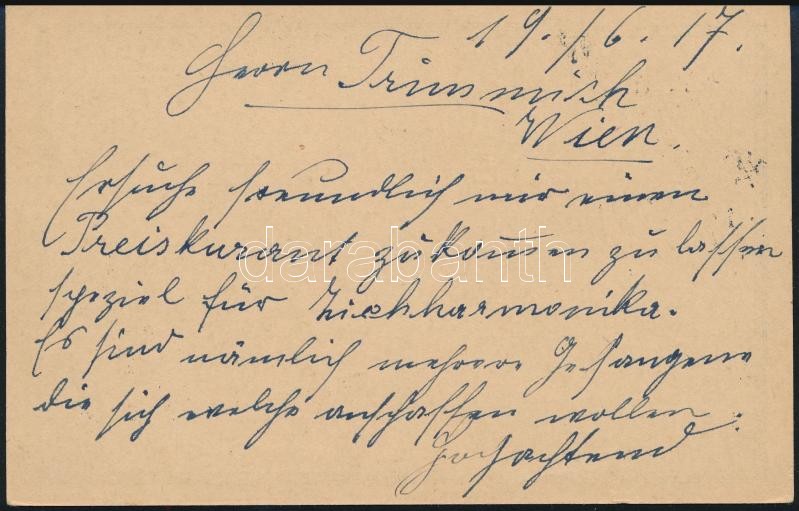 19./6. 17.
Herrn Trimmich
Wien.
Ersuche freundlich mir einen
Preiskurant zukommen zu lassen
speziel für Ziehharmonika.
Es sind nämlich mehrere Gefangene
die sich welche anschaffen wollen.
Hochachtend
darabanth